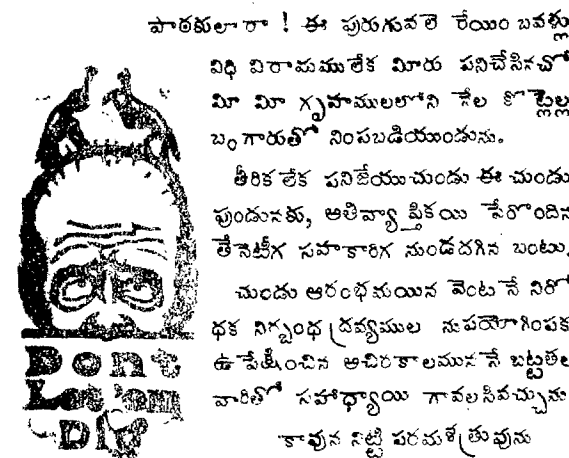 పాఠకులారా ! ఈ పురుగువలె రేయింబవళ్లు
విధి విరామములేక మీరు పనిచేసినచో
మీ మీ గృహములలోని నేల కొట్లెల్ల
బంగారుతో నింపబడియుండును.
తీరిక లేక పనిజేయుచుండు ఈ చుండు
పుండునకు, అతివ్యాప్తికయి పేరొందిన
తేనెటీగ సహకారిగ నుండదగిన బంటు.
చుండు ఆరంభమయిన వెంటనే నిరో
ధక నిగ్బంధ ద్రవ్యముల నుపయోగింపక
ఉపేక్షించిన అచిరకాలముననే బట్టతల
వారితో సహాధ్యాయి గావలసివచ్చును
కావున నిట్టి పరమశత్రువును
Dont
Let'em
Dig